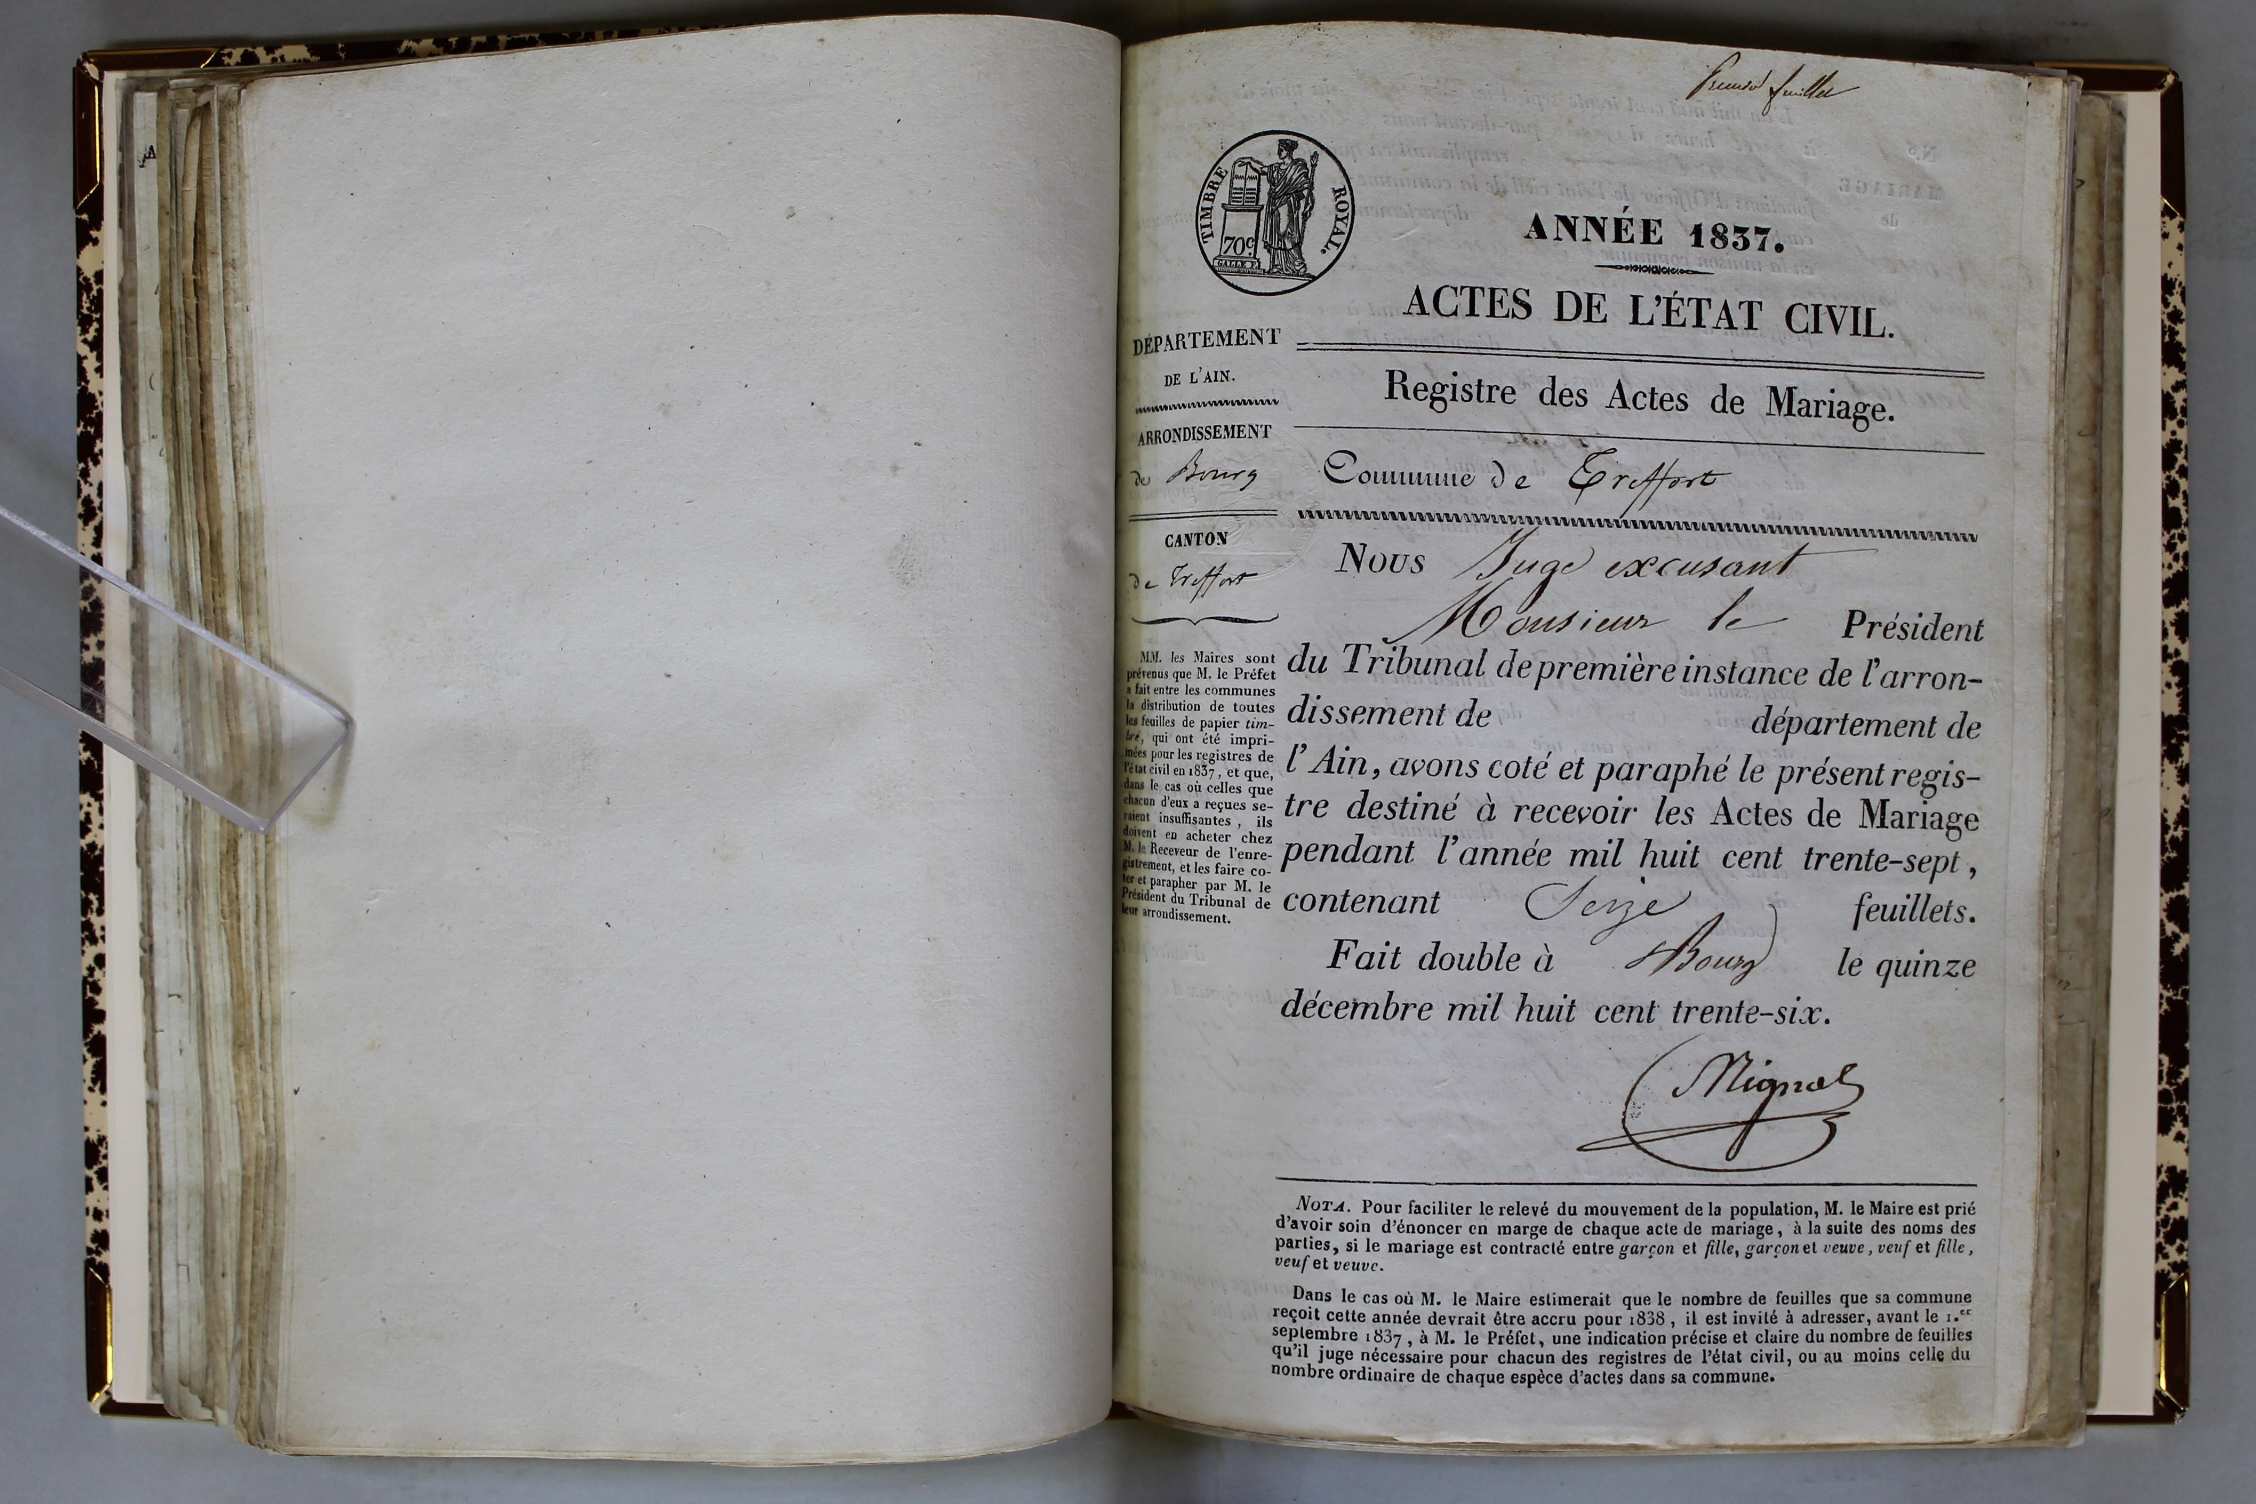 Premier feuillet
TIMBRE ROYAL.
70c
GALLE F.
ANNÉE 1837.
ACTES DE L'ÉTAT CIVIL.
DÉPARTEMENT
DE L'AIN.
ARRONDISSEMENT
de Bourg
CANTON
de Treffort
MM. les Maires sont
prévenus que M. le Préfet
a fait entre les communes
la distribution de toutes
les feuilles de papier tim-
bré, qui ont été impri-
mées pour les registres de
l'état civil en 1837, et que,
dans le cas où celles que
chacun d'eux a reçues se-
raient insuffisantes, ils
doivent en acheter chez
M. le Receveur de l'enre-
gistrement, et les faire co-
ter et parapher par M. le
Président du Tribunal de
leur arrondissement.
Registre des Actes de Mariage.
Commune de Treffort
Nous Juge excusant
Monsieur le Président
du Tribunal de première instance de l'arron-
dissement de département de
l'Ain, avons coté et paraphé le présent regis-
tre destiné à recevoir les Actes de Mariage
pendant l'année mil huit cent trente-sept,
contenant Seize feuillets.
Fait double à Bourg le quinze
décembre mil huit cent trente-six.
NOTA. Pour faciliter le relevé du mouvement de la population, M. le Maire est prié
d'avoir soin d'énoncer en marge de chaque acte de mariage, à la suite des noms des
parties, si le mariage est contracté entre garçon et fille, garçon et veuve, veuf et fille,
veuf et veuve.
Dans le cas où M. le Maire estimerait que le nombre de feuilles que sa commune
reçoit cette année devrait être accru pour 1838, il est invité à adresser, avant le 1.er
septembre 1837, à M. le Préfet, une indication précise et claire du nombre de feuilles
qu'il juge nécessaire pour chacun des registres de l'état civil, ou au moins celle du
nombre ordinaire de chaque espèce d'actes dans sa commune.